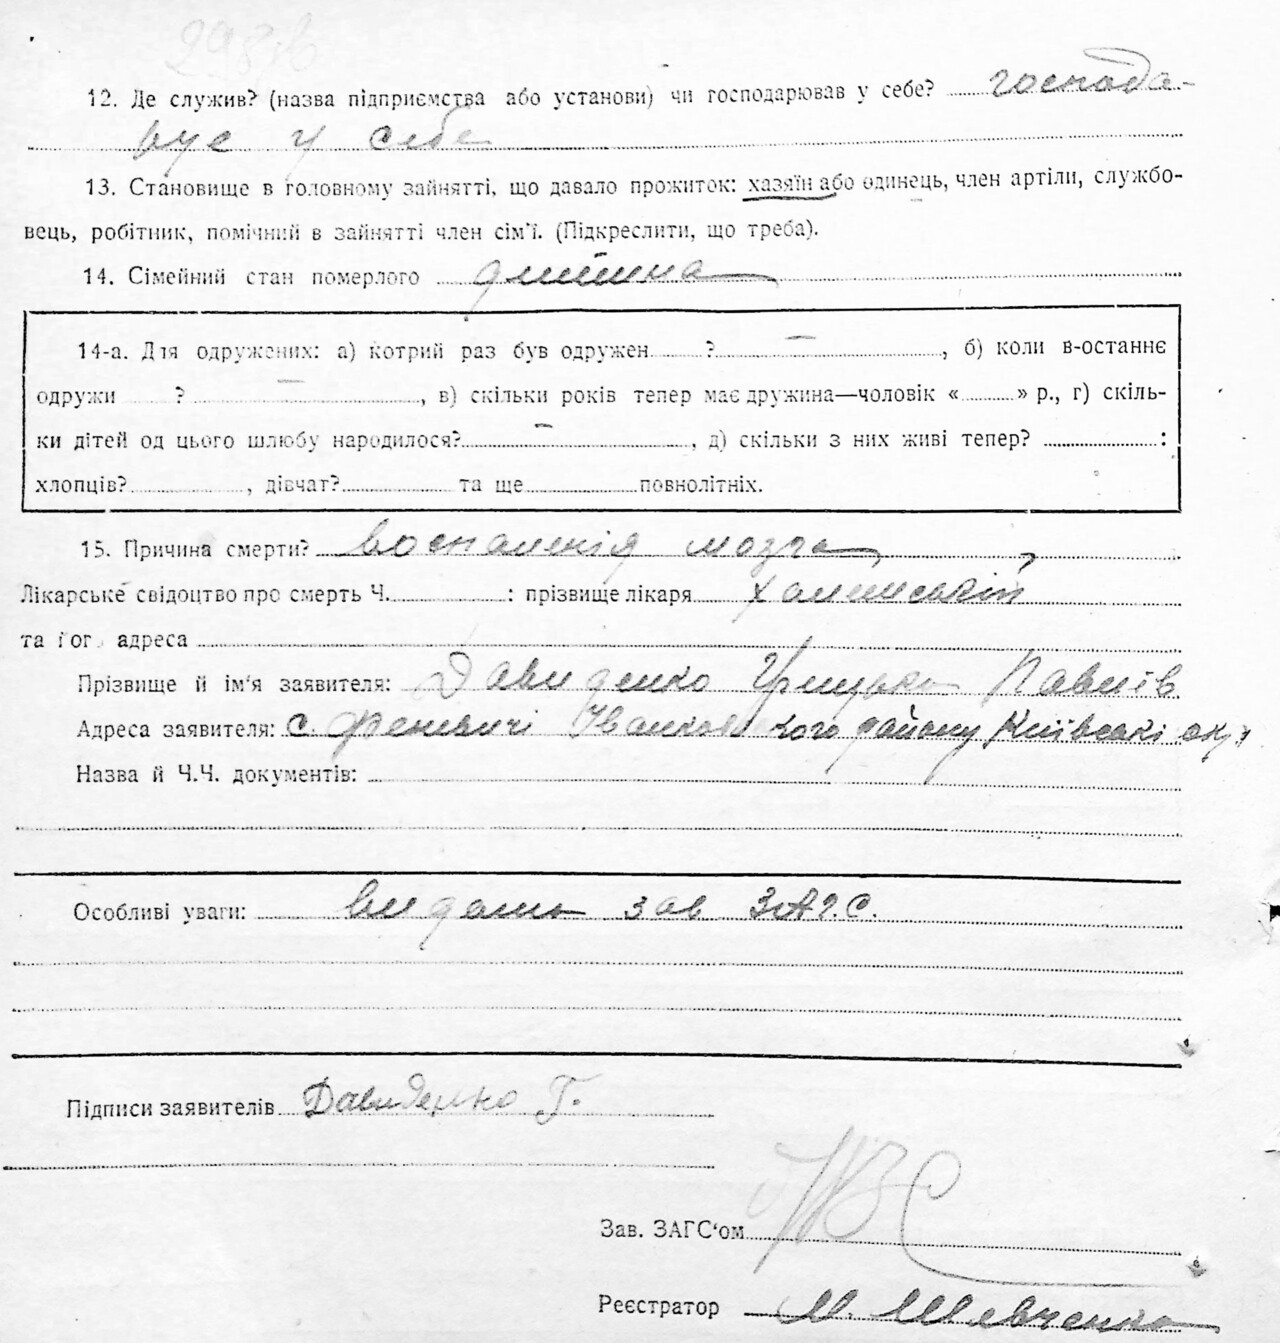 12. Де служив? (назва підприємства або установи) чи господарював у себе? господа-
рує у себе
13. Становище в головному зайнятті, що давало прожиток: хазяїн або одинець, член артіли, службо-
вець, робітник, помічний в зайнятті член сім'ї. (Підкреслити, що треба).
14. Сімейний стан померлого
14-а. Для одружених: а) котрий раз був одружен ? — , б) коли в-останнє
одружи ? — , в) скільки років тепер має дружина—чоловік « » р., г) скіль-
ки дітей од цього шлюбу народилося? — , д) скільки з них живі тепер? :
хлопців? , дівчат? та ще повнолітніх.
15. Причина смерти? воспаленія мозга
Лікарське свідоцтво про смерть Ч. : прізвище лікаря
та його адреса
Прізвище й ім'я заявителя: Давиденко Грицько Павлів
Адреса заявителя: с. Феневичі Іванковського району Київські окр.
Назва й Ч.Ч. документів:
Особливі уваги: зав ЗАГС.
Підписи заявителів Давиденко Г.
Зав. ЗАГС'ом
Реєстратор М. Шевченко